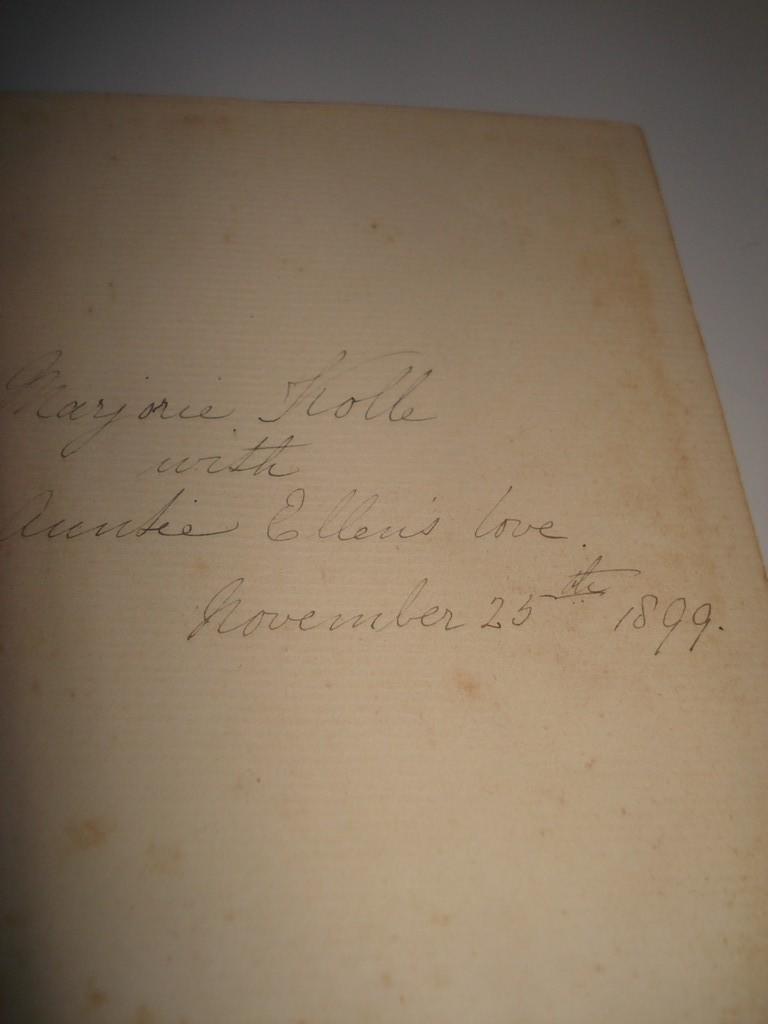 Marjorie Kolle
with
Auntie Ellen's love.
November 25th 1899.